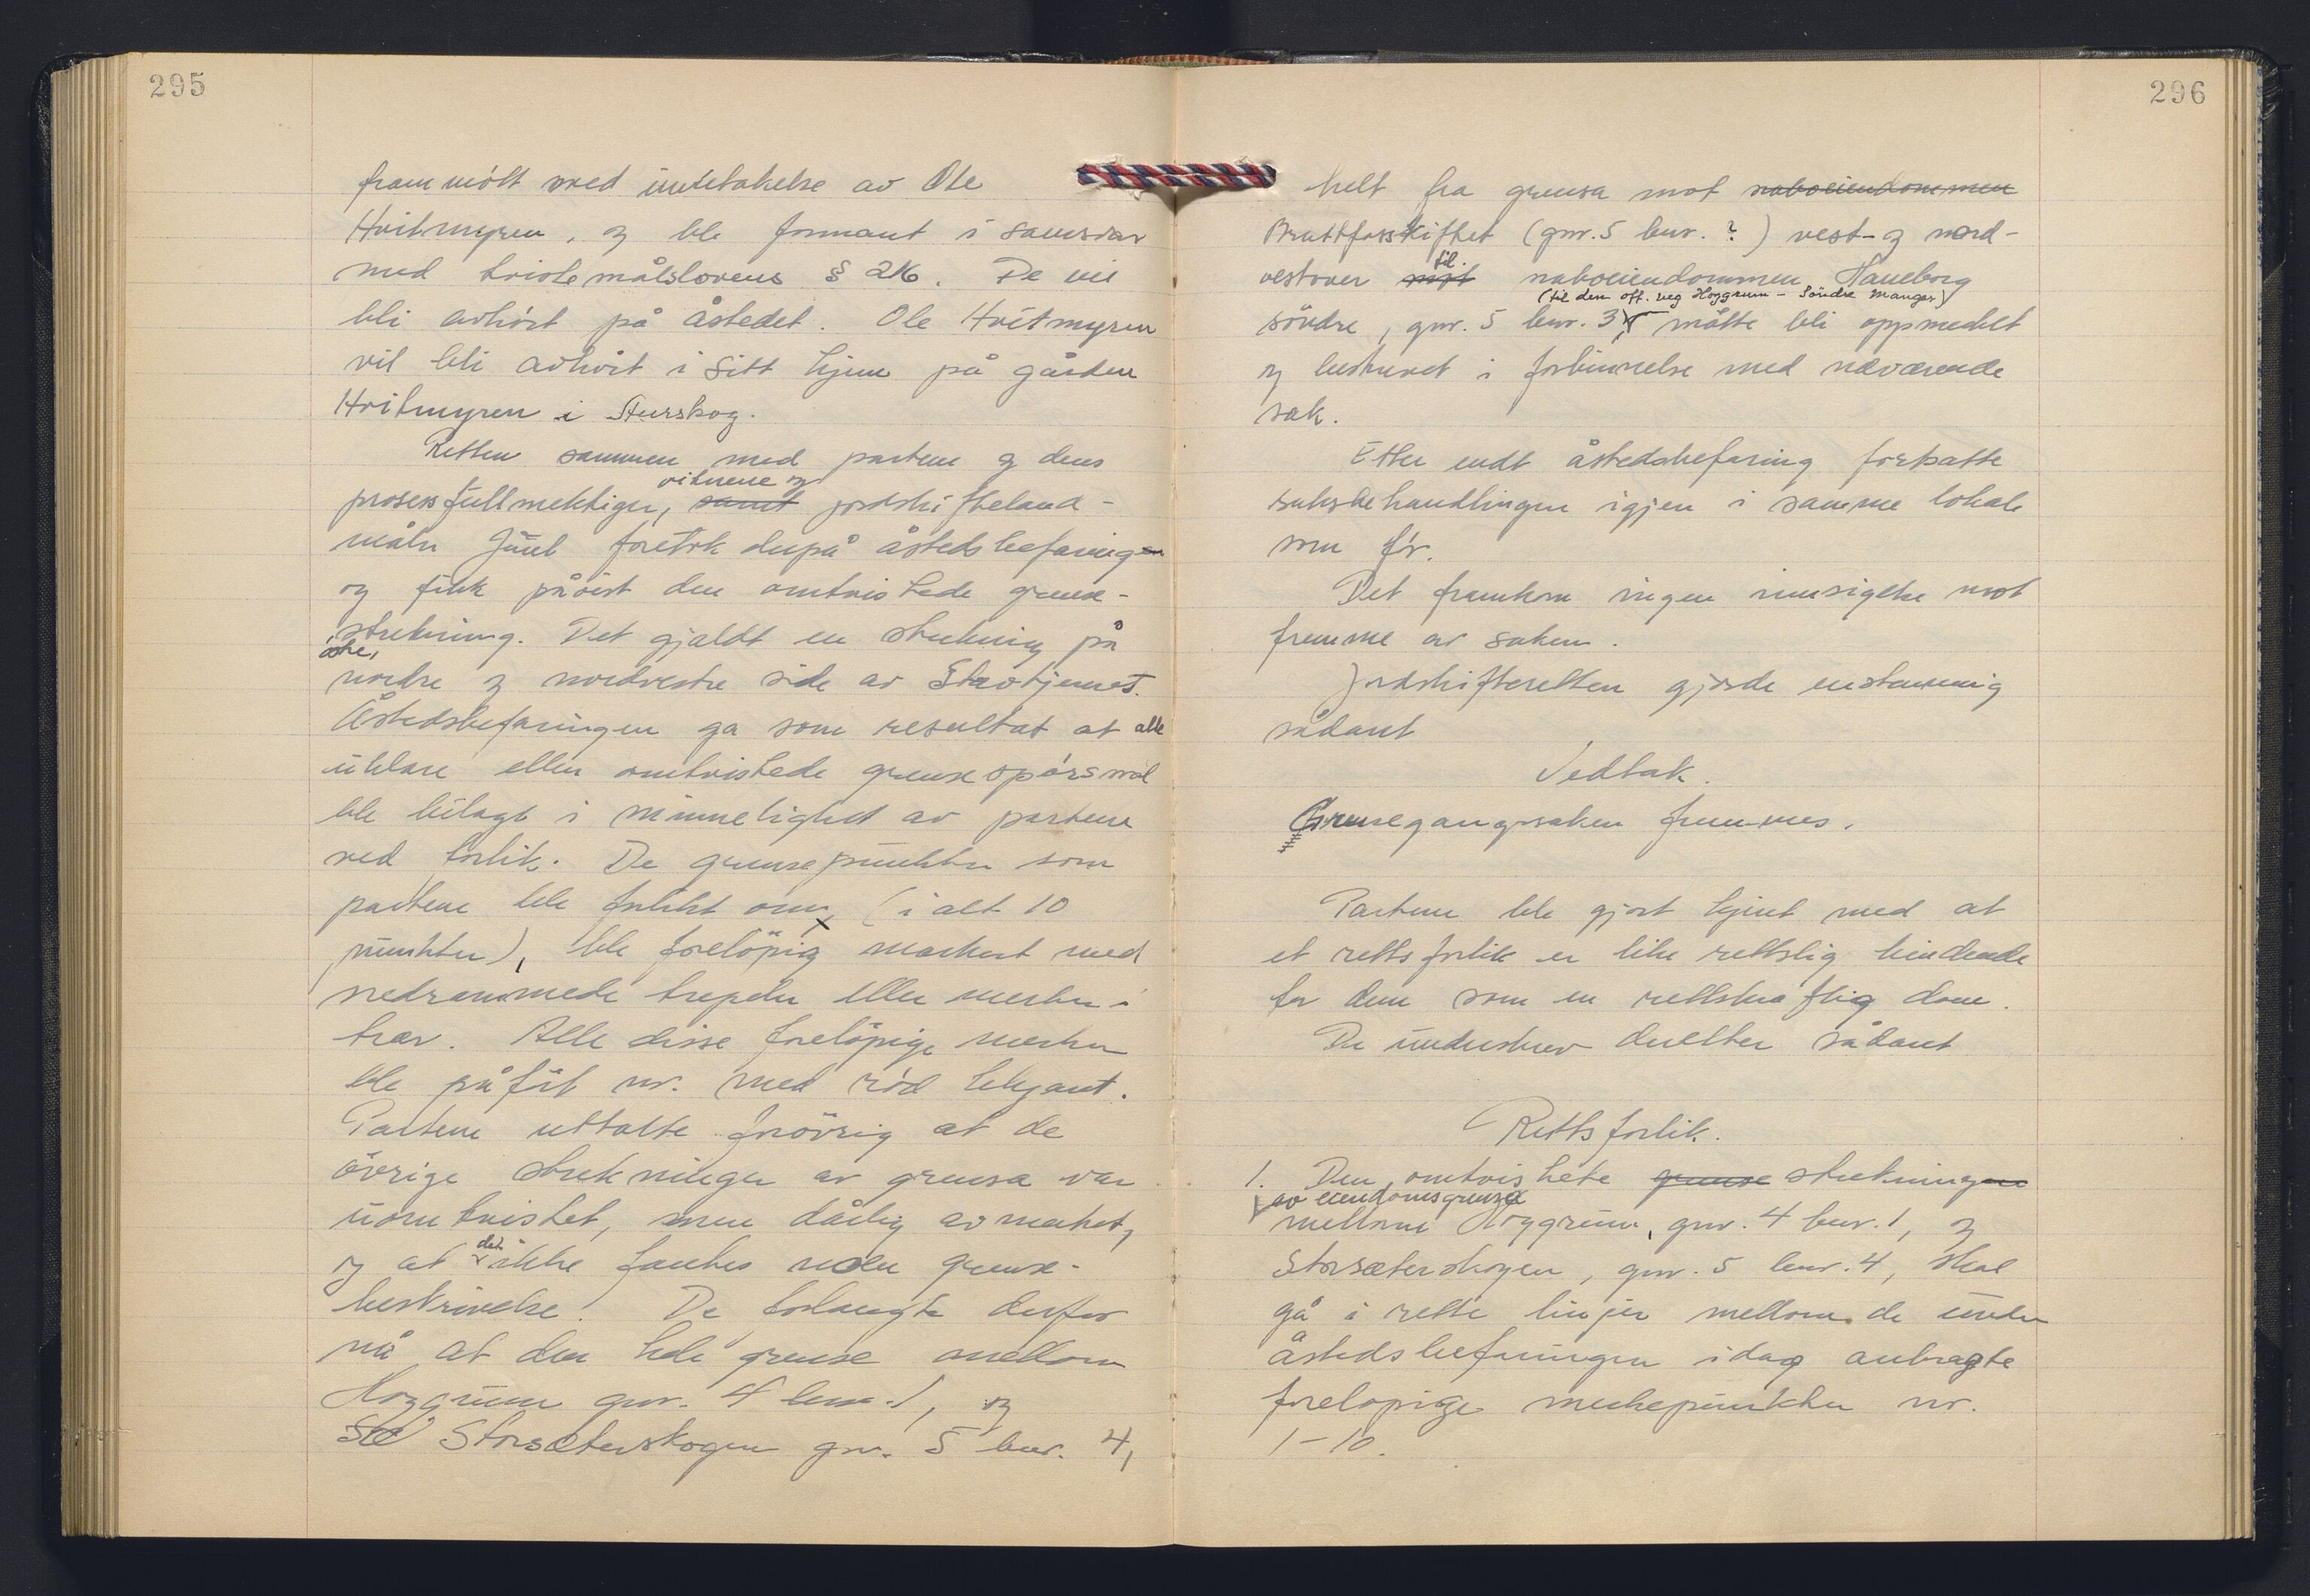 295
frammött med unntakelse av Ole
Hvitmyren, og ble formant i samsvar
med tvistemålslovens § 216. De vil
bli avhört på åstedet. Ole Hvitmyren
vil bli avhört i sitt hjem på gården
Hvitmyren i Aurskog.
Retten sammen med partene og deres
vitnene og
prosessfullmektiger, samt jordskifteland-
måler Juul foretok derpå åstedsbefaringen
og fikk påvist den omtvistede grense-
strekning. Det gjaldt en strekning på
östre,
nordre og nordvestre side av Stavtjernet.
Åstedsbefaringen ga som resultat at alle
uklare eller omtvistede grensespörsmål
ble bilagt i minnelighet av partene
ved forlik. De grensepunkter som
partene ble forlikt om, (i alt 10
punkter), ble forelöpig markert med
nedrammede trepeler eller merker i
trær. Alle disse forelöpige merker
ble påfört nr. med röd blyant.
Partene uttalte forövrig at de
övrige strekninger av grensa var
uomtvistet, men dårlig avmerket,
det
og at ikke fantes noen grense-
beskrivelse. De forlangte derfor
nå at den hele grense mellom
Hoggrum gnr. 4 bnr. 1, og
Storsæterskogen gnr. 5 bnr. 4,
296
helt fra grensa mot naboeiendommen
Brattfossskiftet (gnr. 5 bnr. ?) vest- og nord-
til
vestover mot naboeiendommen Haneborg
(til den off. veg Hoggrum - Söndre Mangen)
söndre, gnr. 5 bnr. 3, måtte bli oppmerket
og beskrevet i forbinnelse med nærværende
sak.
Etter endt åstedsbefaring fortsatte
saksbehandlingen igjen i samme lokale
som för.
Det framkom ingen innsigelse mot
fremme av saken.
Jordskifteretten gjorde enstemmig
sådant
Vedtak.
Grensegangssaken fremmes.
Partene ble gjort kjent med at
et rettsforlik er like rettslig bindende
for dem som en rettskraftig dom.
De underskrev deretter sådant
Rettsforlik.
1. Den omtvistete grense strekningen
av eiendomsgrensa
mellom Hoggrum, gnr. 4 bnr. 1, og
Storsæterskogen, gnr. 5 bnr. 4, skal
gå i rette linjer mellom de under
åstedsbefaringen idag anbragte
forelöpige merkepunkter nr.
1-10.